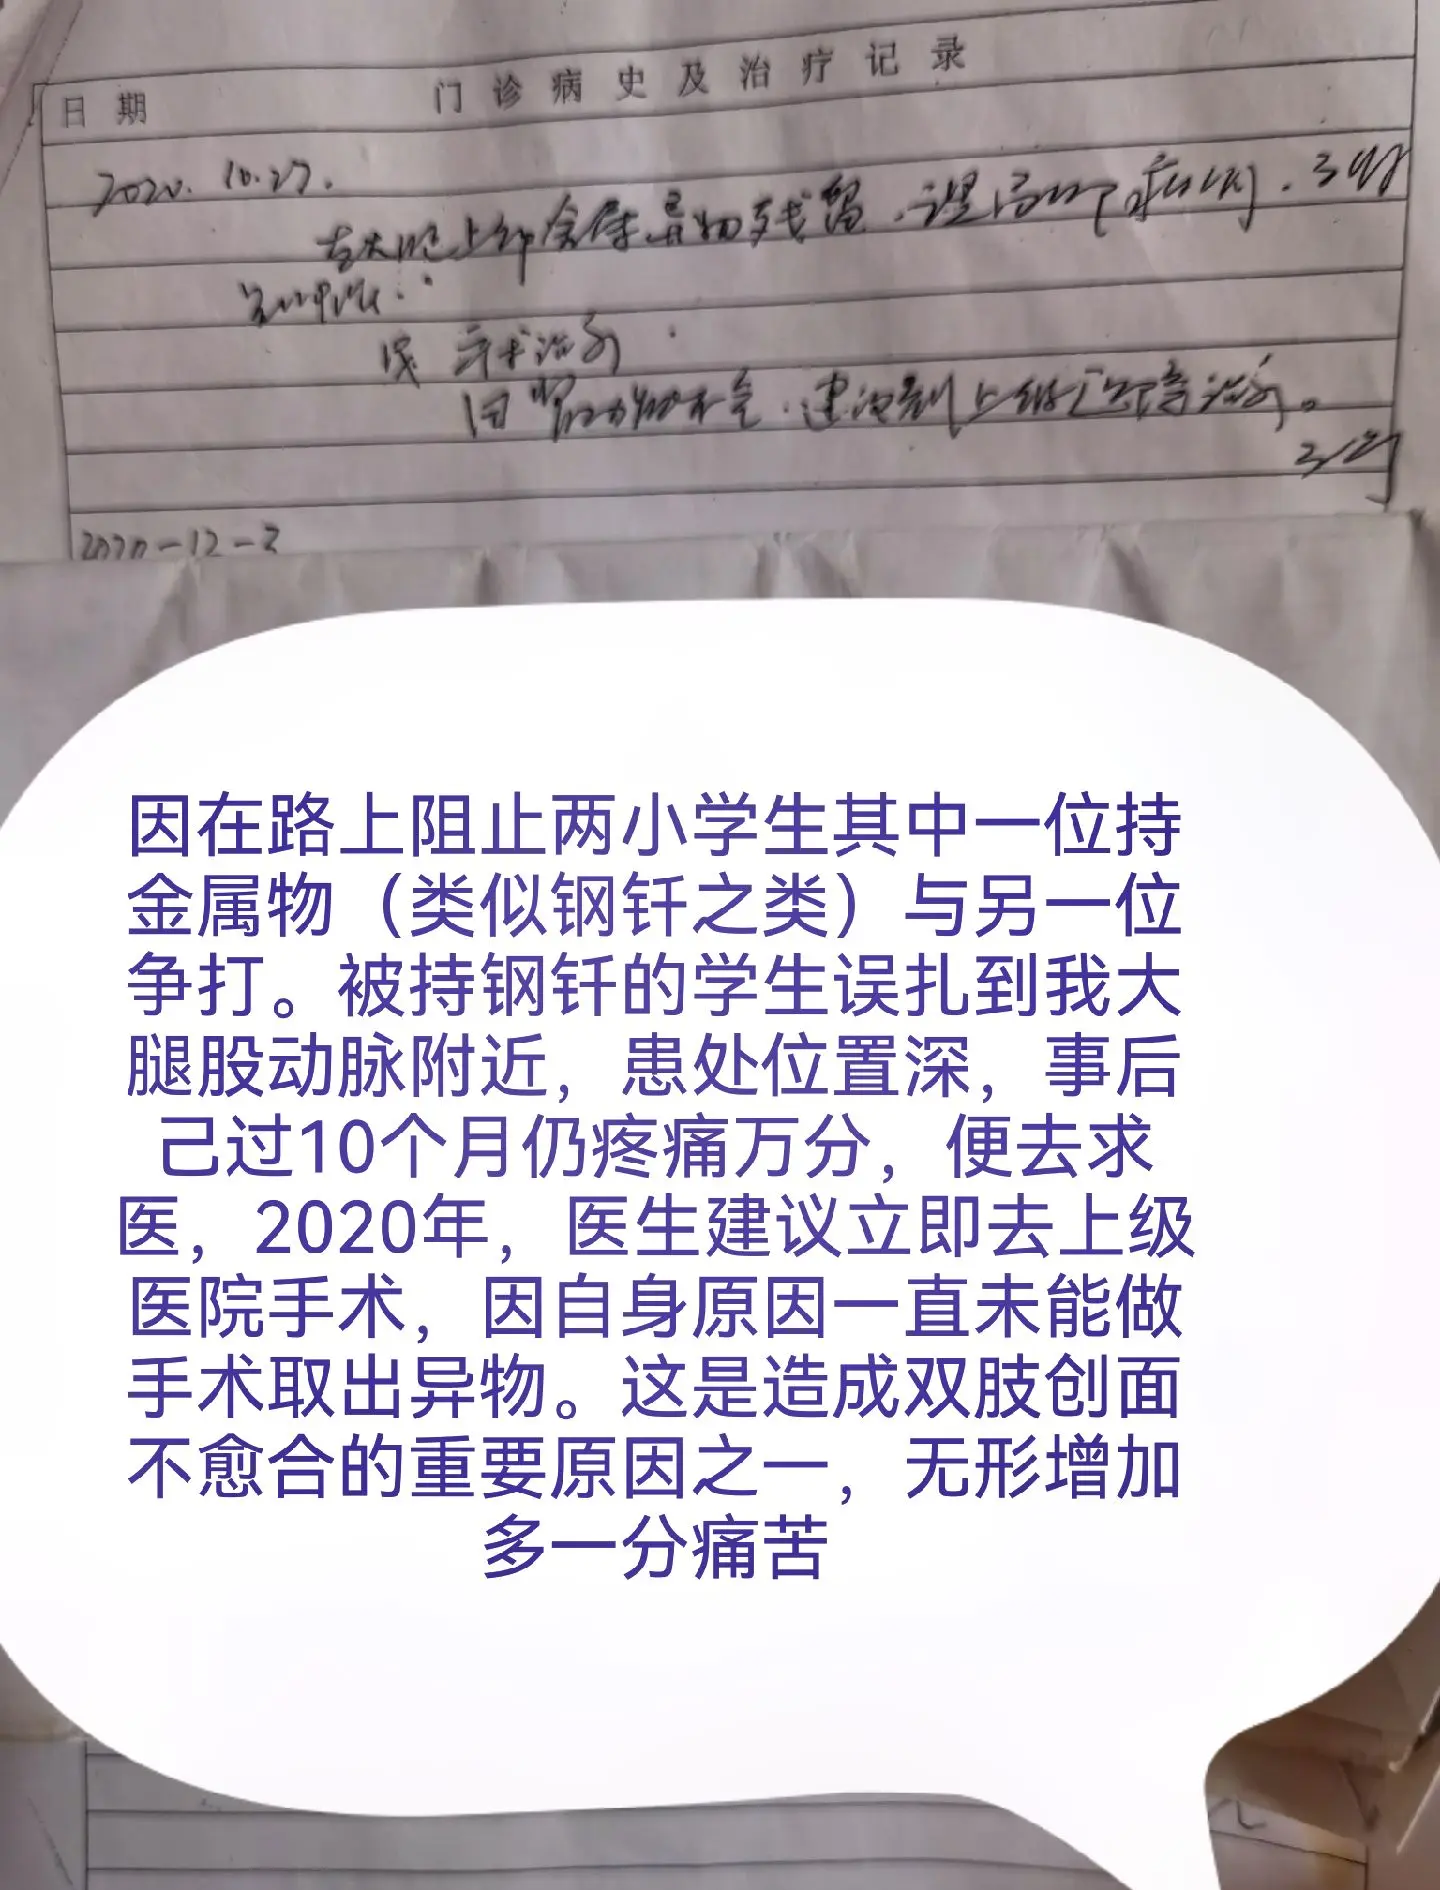 日期 门诊病史及治疗记录
2020.10.27.
左大腿上部金属异物残留
手术治疗
建议到上级医院治疗。
2020-12-3
因在路上阻止两小学生其中一位持
金属物（类似钢钎之类）与另一位
争打。被持钢钎的学生误扎到我大
腿股动脉附近，患处位置深，事后
己过10个月仍疼痛万分，便去求
医，2020年，医生建议立即去上级
医院手术，因自身原因一直未能做
手术取出异物。这是造成双肢创面
不愈合的重要原因之一，无形增加
多一分痛苦